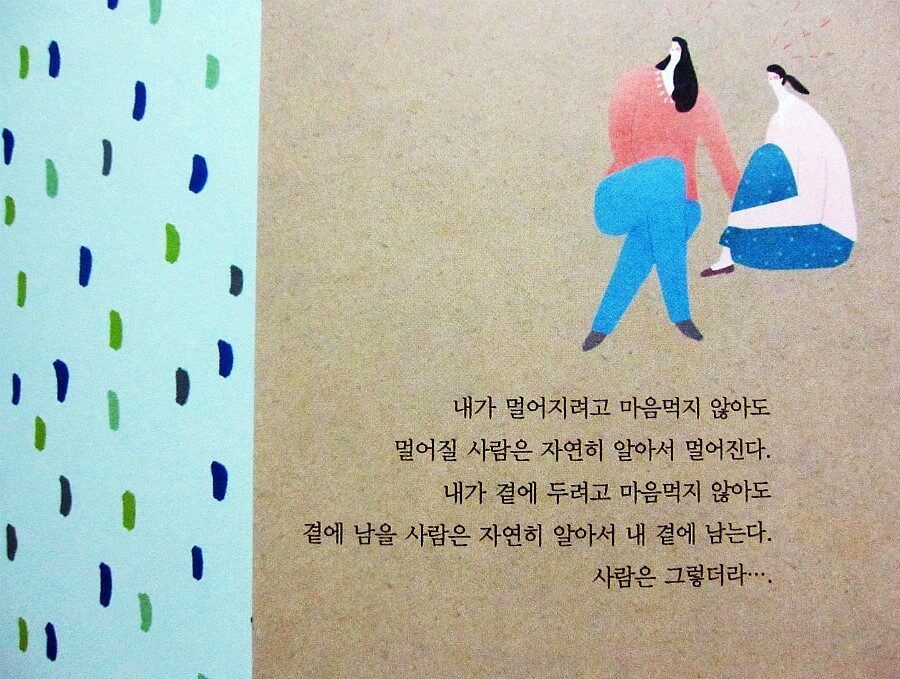 내가 멀어지려고 마음먹지 않아도
멀어질 사람은 자연히 알아서 멀어진다.
내가 곁에 두려고 마음먹지 않아도
곁에 남을 사람은 자연히 알아서 내 곁에 남는다.
사람은 그렇더라….